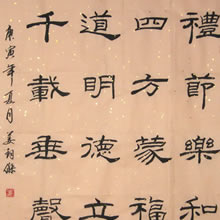 禮節樂和
四方蒙福
道明德立
千載垂聲
庚寅年夏月